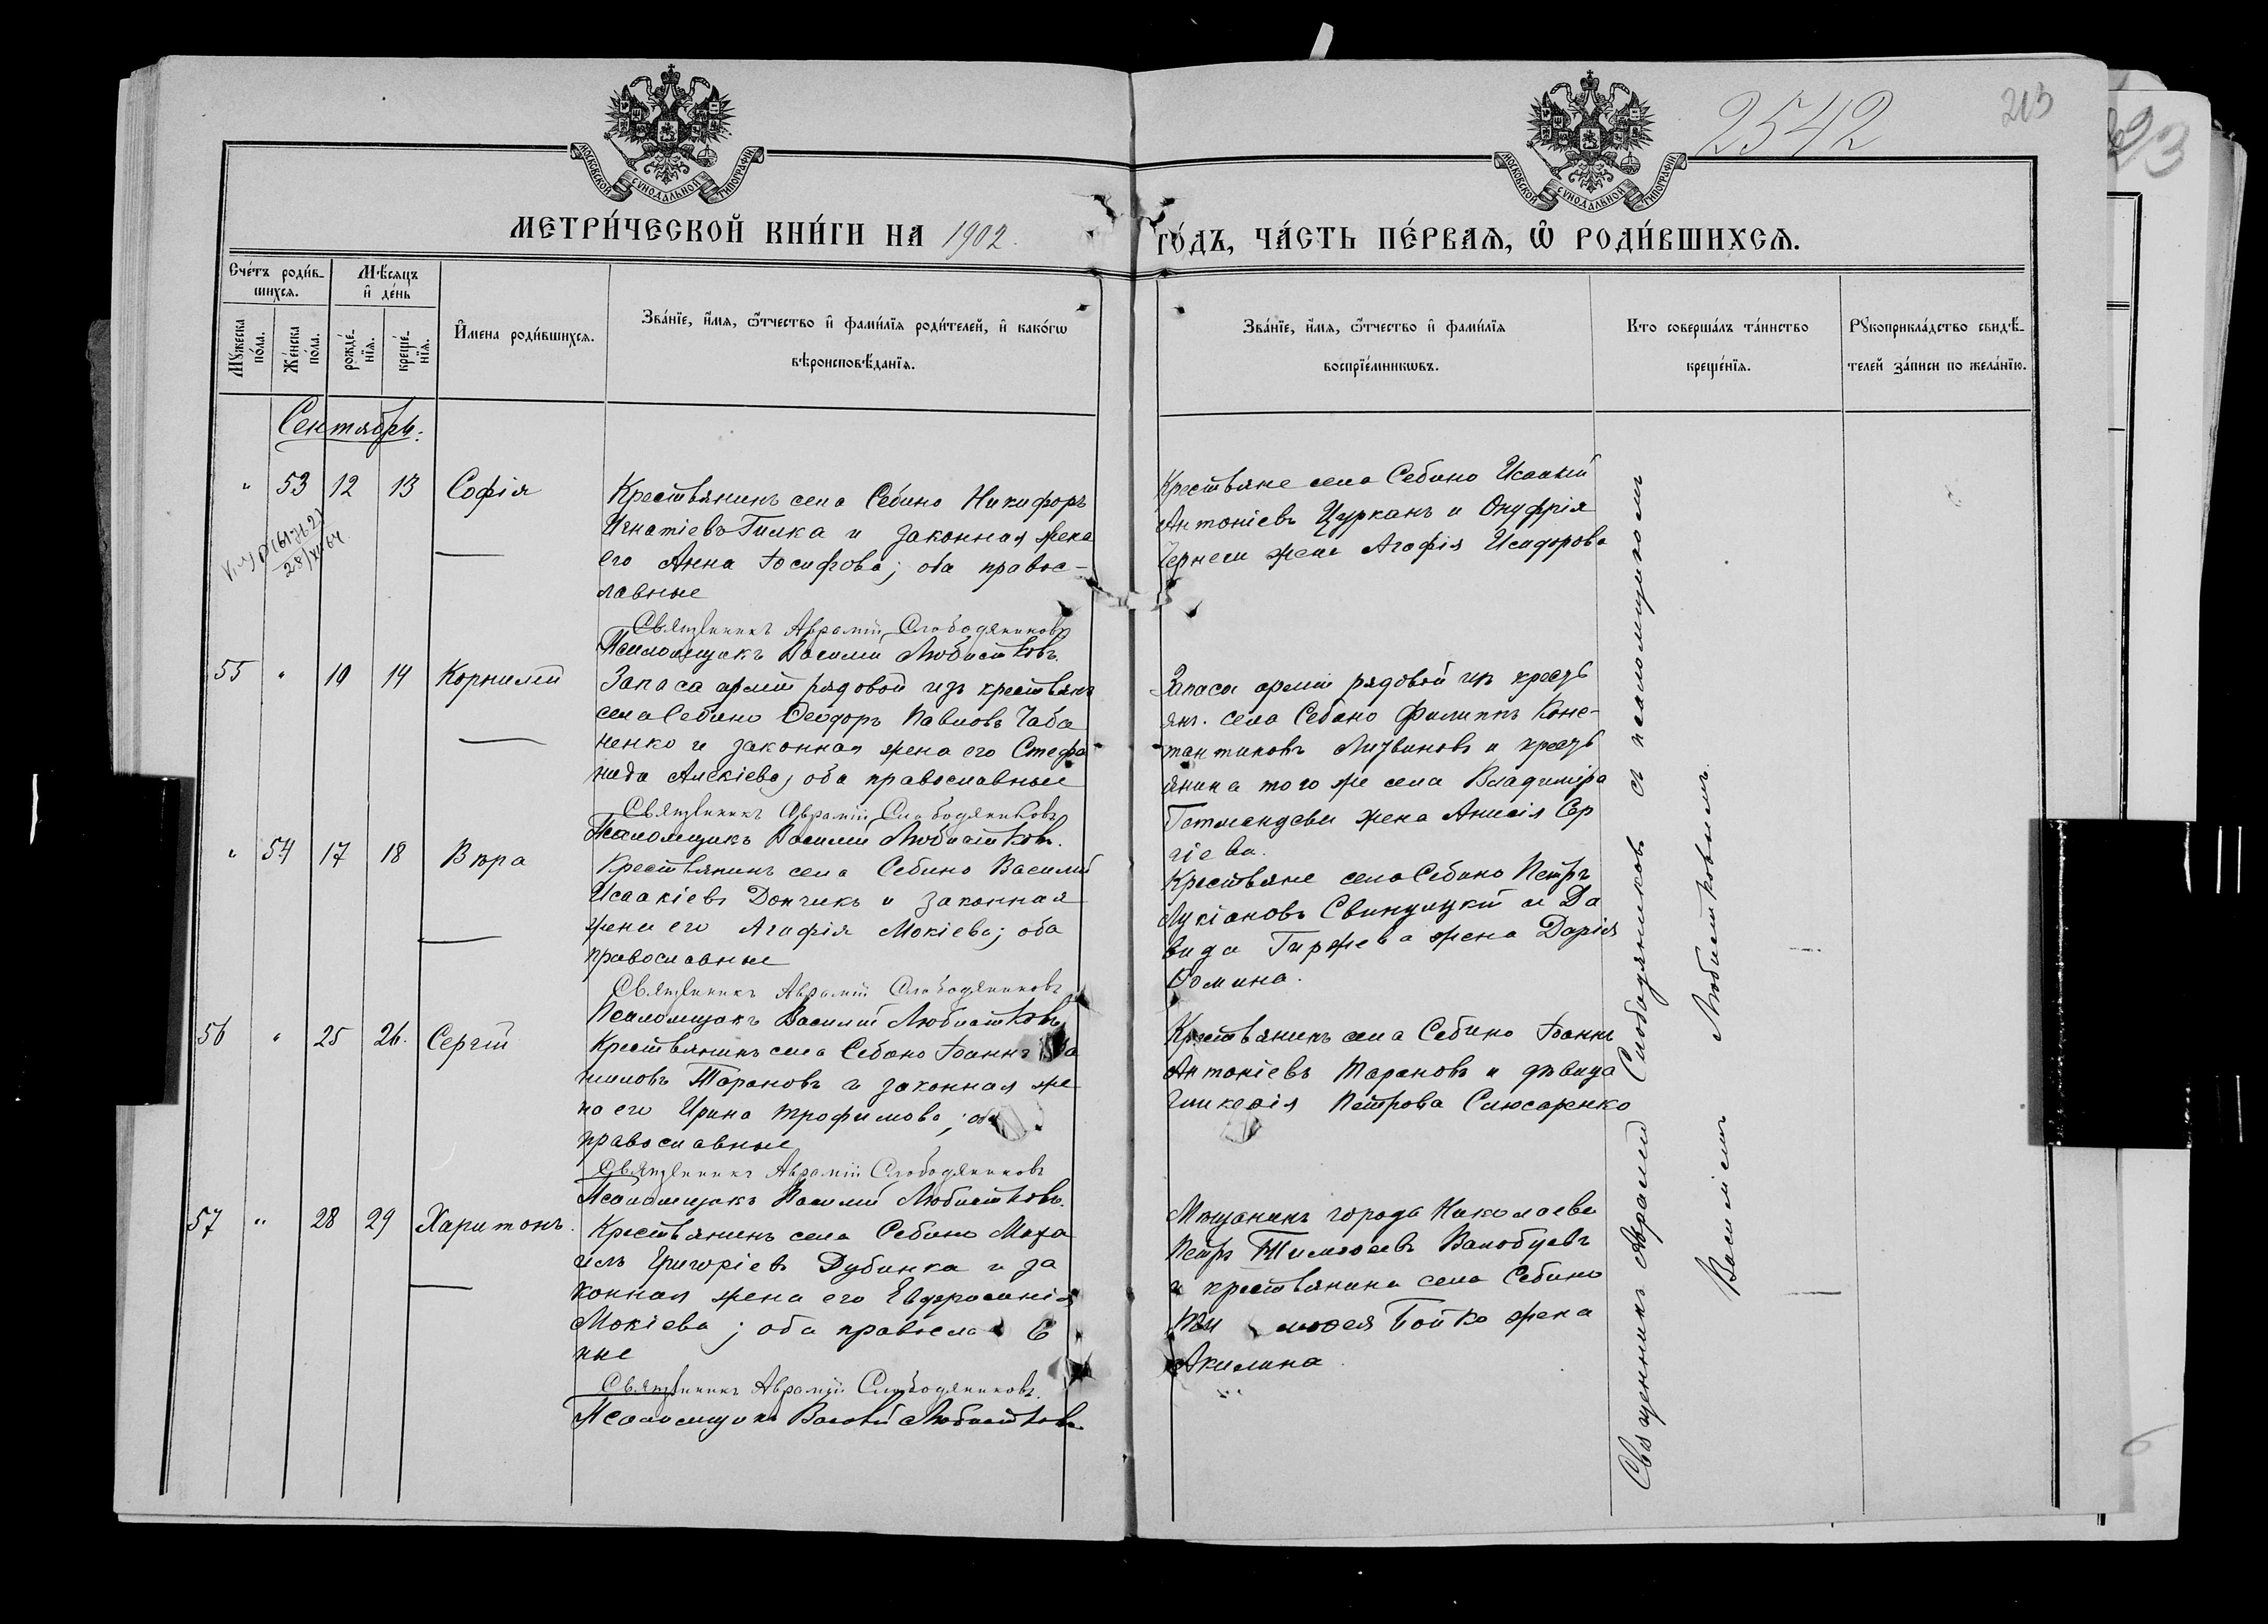 2542
213
МОСКОВСКОЙ СУНОДАЛЬНОЙ ТИПОГРАФІИ
МОСКОВСКОЙ СУНОДАЛЬНОЙ ТИПОГРАФІИ
МЕТРИ́ЧЕСКОЙ КНИ́ГИ НА 1902.
ГО́ДЪ, ЧА́СТЬ ПЕ́РВАѦ, Ѡ҆ РОДИ́ВШИХСѦ.
Счє́тъ роди́в-
шихсѧ.
Мѣ́сѧцъ
и҆ де́нь
Мꙋ́жеска
по́ла.
Же́нска
по́ла.
рожде́-
нїѧ.
креще́-
нїѧ.
И҆мена роди́вшихсѧ.
Зва́нїе, и҆́мѧ, ѻ҆́тчество и҆ фами́лїѧ роди́телей, и҆ како́гѡ
вѣроисповѣ́данїѧ.
Зва́нїе, и҆́мѧ, ѻ҆́тчество и҆ фами́лїѧ
воспрїе́мникѡвъ.
Кто соверша́лъ та́инство
креще́нїѧ.
Рꙋкоприкла́дство свидѣ́-
телей за́писи по жела́нїю.
Сентябрь.
" 53 12 13 Софія
Крестьянинъ села Себино Никифоръ
Игнатіевъ Гилка и законная жена
его Анна Іосифова; оба правос-
лавные
Священникъ Аврамій Слободяниковъ
Псаломщикъ Василій Любистковъ.
Крестьяне села Себино Исаакій
Антоніевъ Цурканъ и Онуфрія
Чернеги жена Агафія Исидорова
28/XI 64
55 " 10 14 Корнилій
Запаса арміи рядовой изъ крестьянъ
села Себино Ѳеодоръ Павловъ Чаба
ненко и законная жена его Стефа
нида Алекіева; оба православные
Священникъ Аврамій Слободяниковъ
Псаломщикъ Василій Любистковъ.
Запаса арміи рядовой изъ кресть
янъ села Себино Филиппъ Конс-
тантиновъ Литвиновъ и кресть
янина того же села Владиміра
жена Анисія Сер
гіева.
" 54 17 18 Вѣра
Крестьянинъ села Себино Василій
Исаакіевъ Дончикъ и законная
жена его Агафія Мокіева; оба
православные
Священникъ Аврамій Слободяниковъ
Псаломщикъ Василій Любистковъ
Крестьяне села Себино Петръ
Лукіановъ Свинцицкій и Да
вида Гиржева жена Дарія
Ѳомина.
56 " 25 26. Сергій
Крестьянинъ села Себино Іоаннъ Да
ниловъ Тарановъ и законная же
на его Ирина Трофимова; оба
православные
Священникъ Аврамій Слободяниковъ
Псаломщикъ Василій Любистковъ.
Крестьянинъ села Себино Іоаннъ
Антоніевъ Тарановъ и дѣвица
Гликерія Петрова Слюсаренко
57 " 28 29 Харитонъ.
Крестьянинъ села Себино Миха
илъ Григоріевъ Дубинка и за
конная жена его Евфросинія
Мокіева; оба православ
ные
Священникъ Аврамій Слободяниковъ.
Псаломщикъ Василій Любистковъ
Мѣщанинъ города Николаева
Петръ Тимоѳеевъ
и крестьянина села Себино
Тимоѳея Бойко жена
Акилина.
Священникъ Аврамій Слободяниковъ съ псаломщикомъ
Василіемъ Любистковымъ.